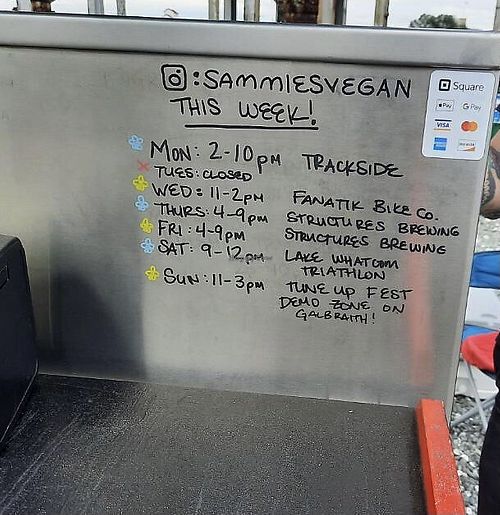 :SAMMIESVEGAN
THIS WEEK!
MON: 2-10PM TRACKSIDE
TUES: CLOSED
WED: 11-2PM FANATIK BIKE CO.
THURS: 4-9PM STRUCTURES BREWING
FRI: 4-9PM STRUCTURES BREWING
SAT: 9-12PM LAKE WHATCOM
TRIATHLON
SUN: 11-3PM TUNE UP FEST
DEMO ZONE ON
GALBRAITH!
Square
Pay
G Pay
VISA